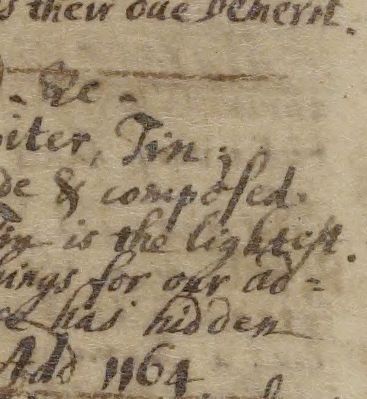 their due demerit.
&c.
iter, Tin,
de & composed.
Tin is the lightest.
hings for our ad=
ce has hidden
Add 1164